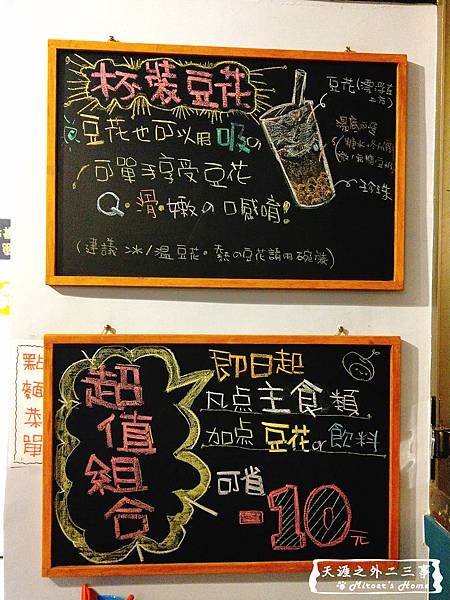 杯裝豆花
豆花也可以用吸の
可單手享受豆花
Q·滑·嫩の口感唷!
(建議 冰/溫豆花·熱の豆花請用碗裝)
豆花(漂浮在上方)
珍珠
點麵菜單
超值組合
即日起
凡点主食類
加点豆花or飲料
可省
-10元
天涯之外二三事
Miroer's Home